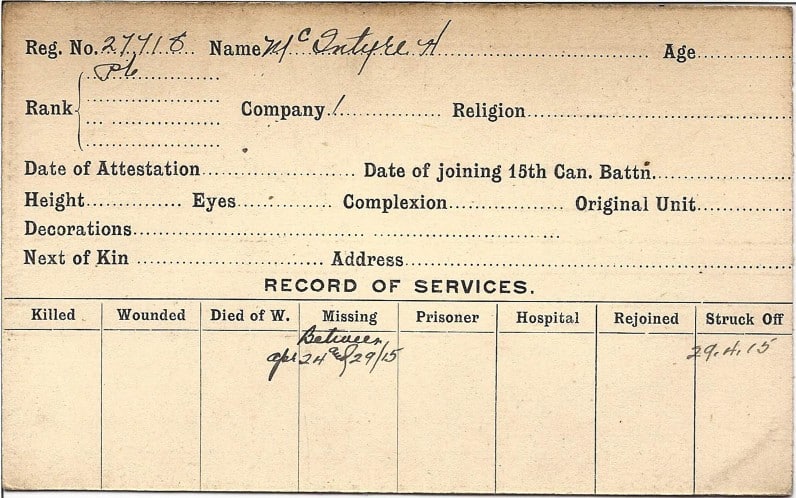 Reg. No. 27718 Name McIntyre H Age
Pte
Rank Company 1 Religion
Date of Attestation Date of joining 15th Can. Battn.
Height Eyes Complexion Original Unit
Decorations
Next of Kin Address
RECORD OF SERVICES.
Killed Wounded Died of W. Missing Prisoner Hospital Rejoined Struck Off
Between
Apr 24 & 29/15 29.4.15